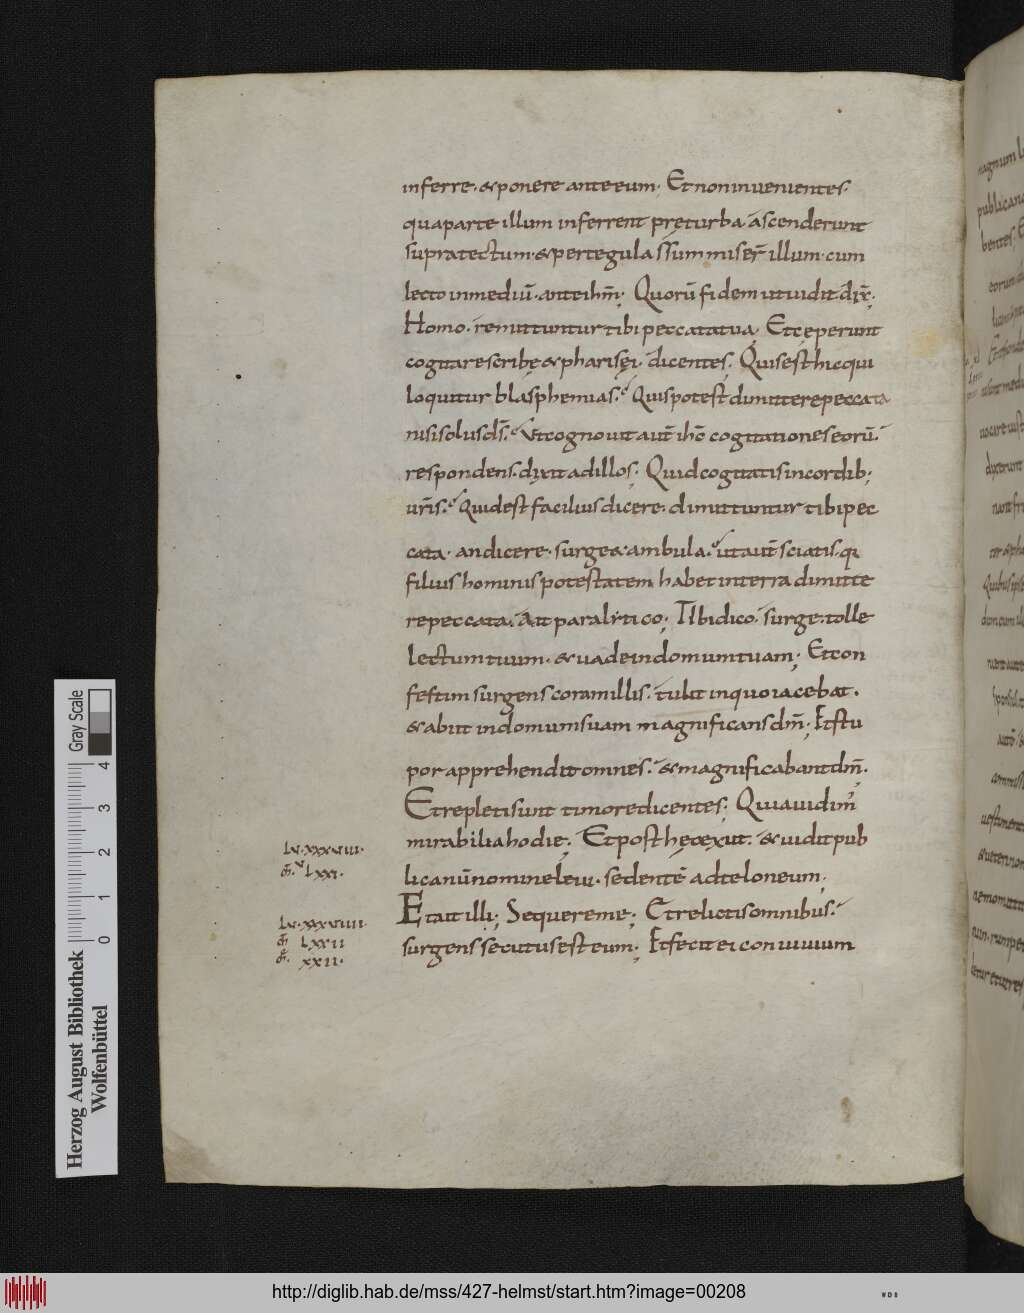 inferre · & ponere ante eum · Et non invenientes ·
qua parte illum inferrent prę turba · ascenderunt
supra tectum · & per tegulas summiser̄ illum · cum
lecto in mediū · ante ih̅m ; Quorū fidem ut vidit · dix̄ ·
Homo · remittuntur tibi peccata tua ; Et cęperunt
cogitare scribę & pharisęi · dicentes ; Quis est hic qui
loquitur blasphemias · Quis potest dimittere peccata
nisi solus d̅s · Ut cognovit aut̅ ih̅c cogitationes eorū ·
respondens · dixit ad illos ; Quid cogitatis in cordib ;
ur̅is · Quid est facilius dicere · dimittuntur tibi pec
cata · an dicere · surge & ambula · ut aut̅ sciatis · q
filius hominis potestatem habet in terra dimitte
re peccata · Ait paralitico ; Tibi dico · surge · tolle
lectum tuum · & vade in domum tuam ; Et con
festim surgens coram illis · tulit in quo iacebat ·
& abiit in domum suam magnificans d̅m ; Et stu
por apprehendit omnes · & magnificabant d̅m ·
Et repleti sunt timore dicentes ; Quia vidim'
mirabilia hodie ; Et post hęc exiit · & vidit pub
licanū nomine levi · sedentē ad teloneum ;
Et ait illi ; Sequere me ; Et relictis omnibus ·
surgens secutus est eum ; Et fecit ei convivium
Lv · xxxviii ·
Lxxi ·
Lv · xxxviiii ·
Lxxii
xxii ·
Herzog August Bibliothek
Wolfenbüttel
0 1 2 3 4
Gray Scale
http://diglib.hab.de/mss/427-helmst/start.htm?image=00208